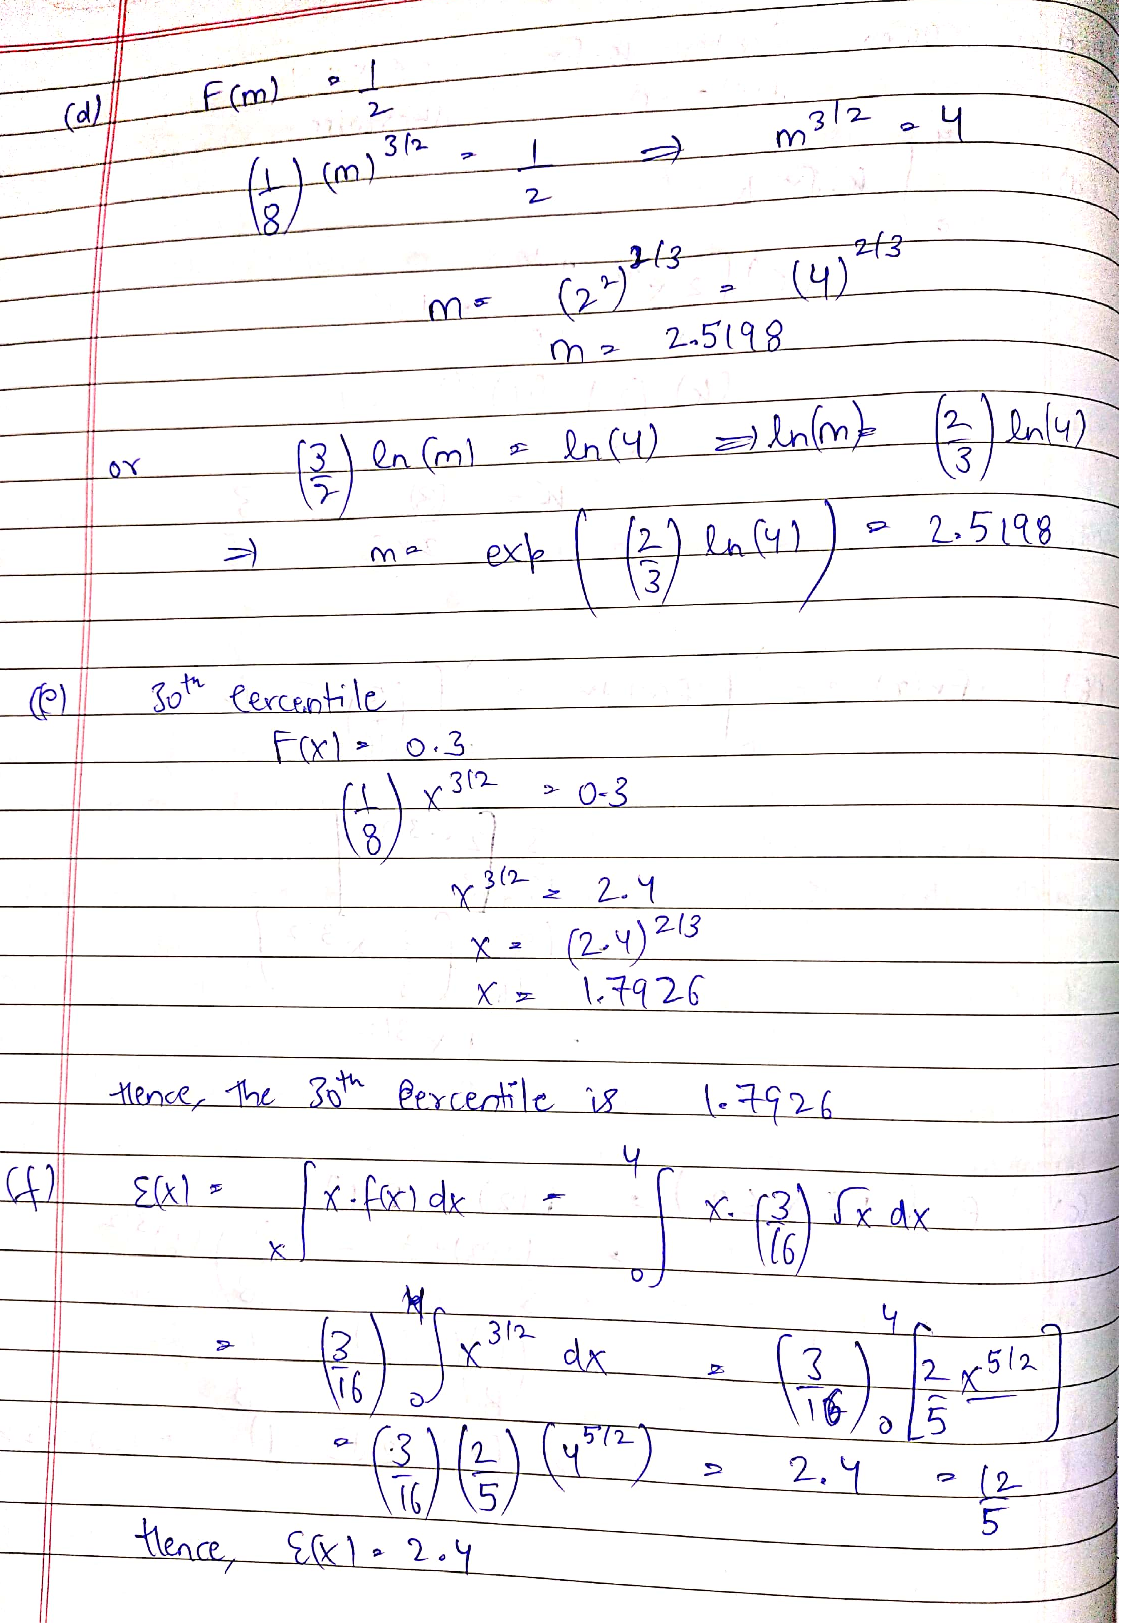 (d) F(m) = 1/2
(1/8) (m)^3/2 = 1/2 ⇒ m^3/2 = 4
m = (2^2)^2/3 = (4)^2/3
m = 2.5198
or (3/2) ln(m) = ln(4) ⇒ ln(m) = (2/3) ln(4)
⇒ m = exp ( (2/3) ln(4) ) = 2.5198
(e) 30th Percentile
F(x) = 0.3
(1/8) x^3/2 = 0.3
x^3/2 = 2.4
x = (2.4)^2/3
x = 1.7926
Hence, the 30th Percentile is 1.7926
(f) E(x) = ∫_x x·f(x) dx = ∫_0^4 x·(3/16) √x dx
= (3/16) ∫_0^4 x^3/2 dx = (3/16) _0^4[2/5 x^5/2]
= (3/16) (2/5) (4^5/2) = 2.4 = 12/5
Hence, E(x) = 2.4